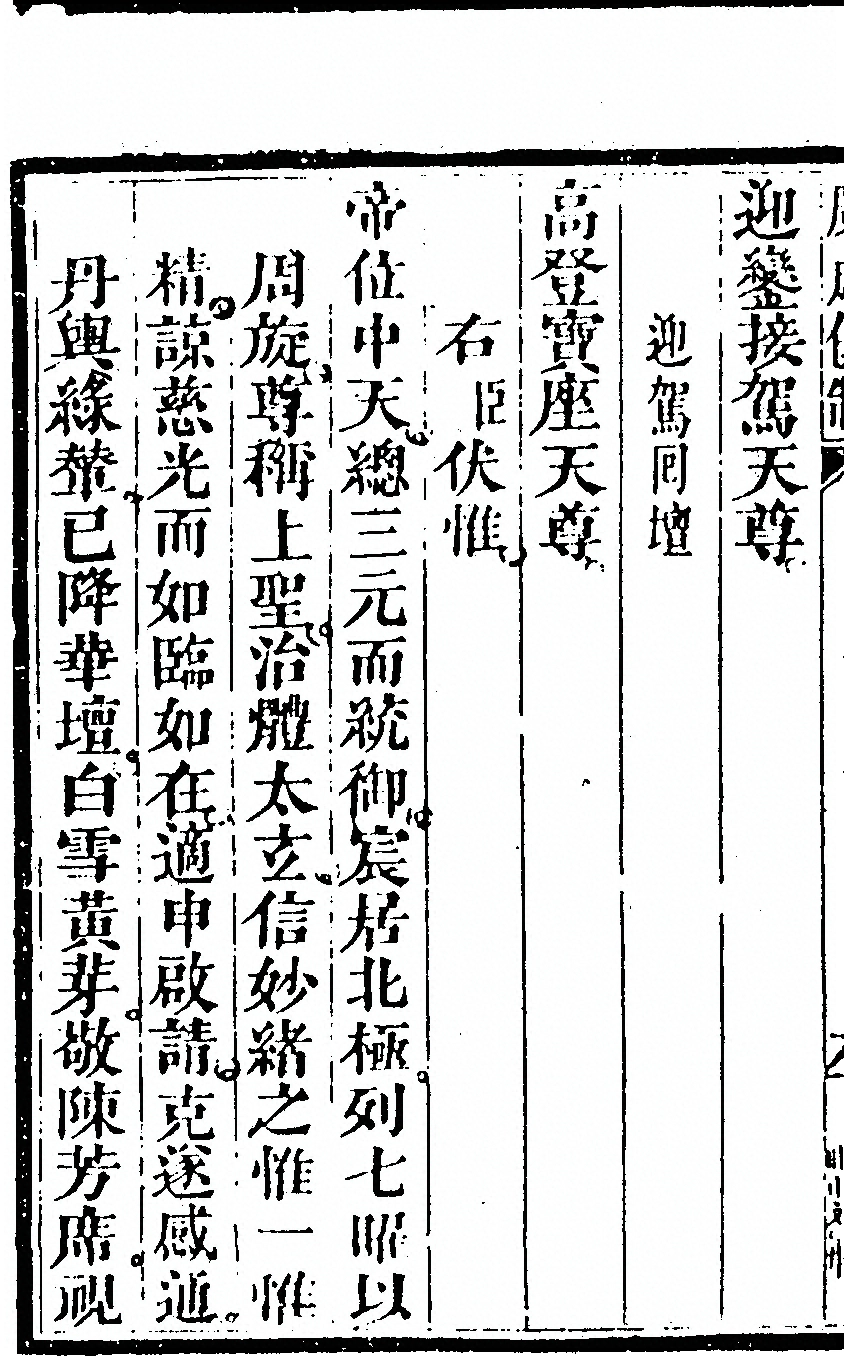 迎鑾接駕天尊
迎駕回壇
高登寶座天尊
右臣伏惟
帝位中天總三元而統御宸居北極列七曜以
周旋尊稱上聖治體太玄信妙緒之惟一惟
精諒慈光而如臨如在適申啟請克遂感通
丹輿綠輦已降華壇白雪黃芽敬陳芳席視